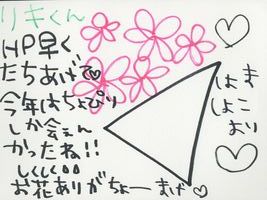 リキくん
HP早く
たちあげて♡
今年はちょぴり
しか会えん
かったね!!
しくしく
お花ありがちょー
まげ♡
はま
しょこ
より